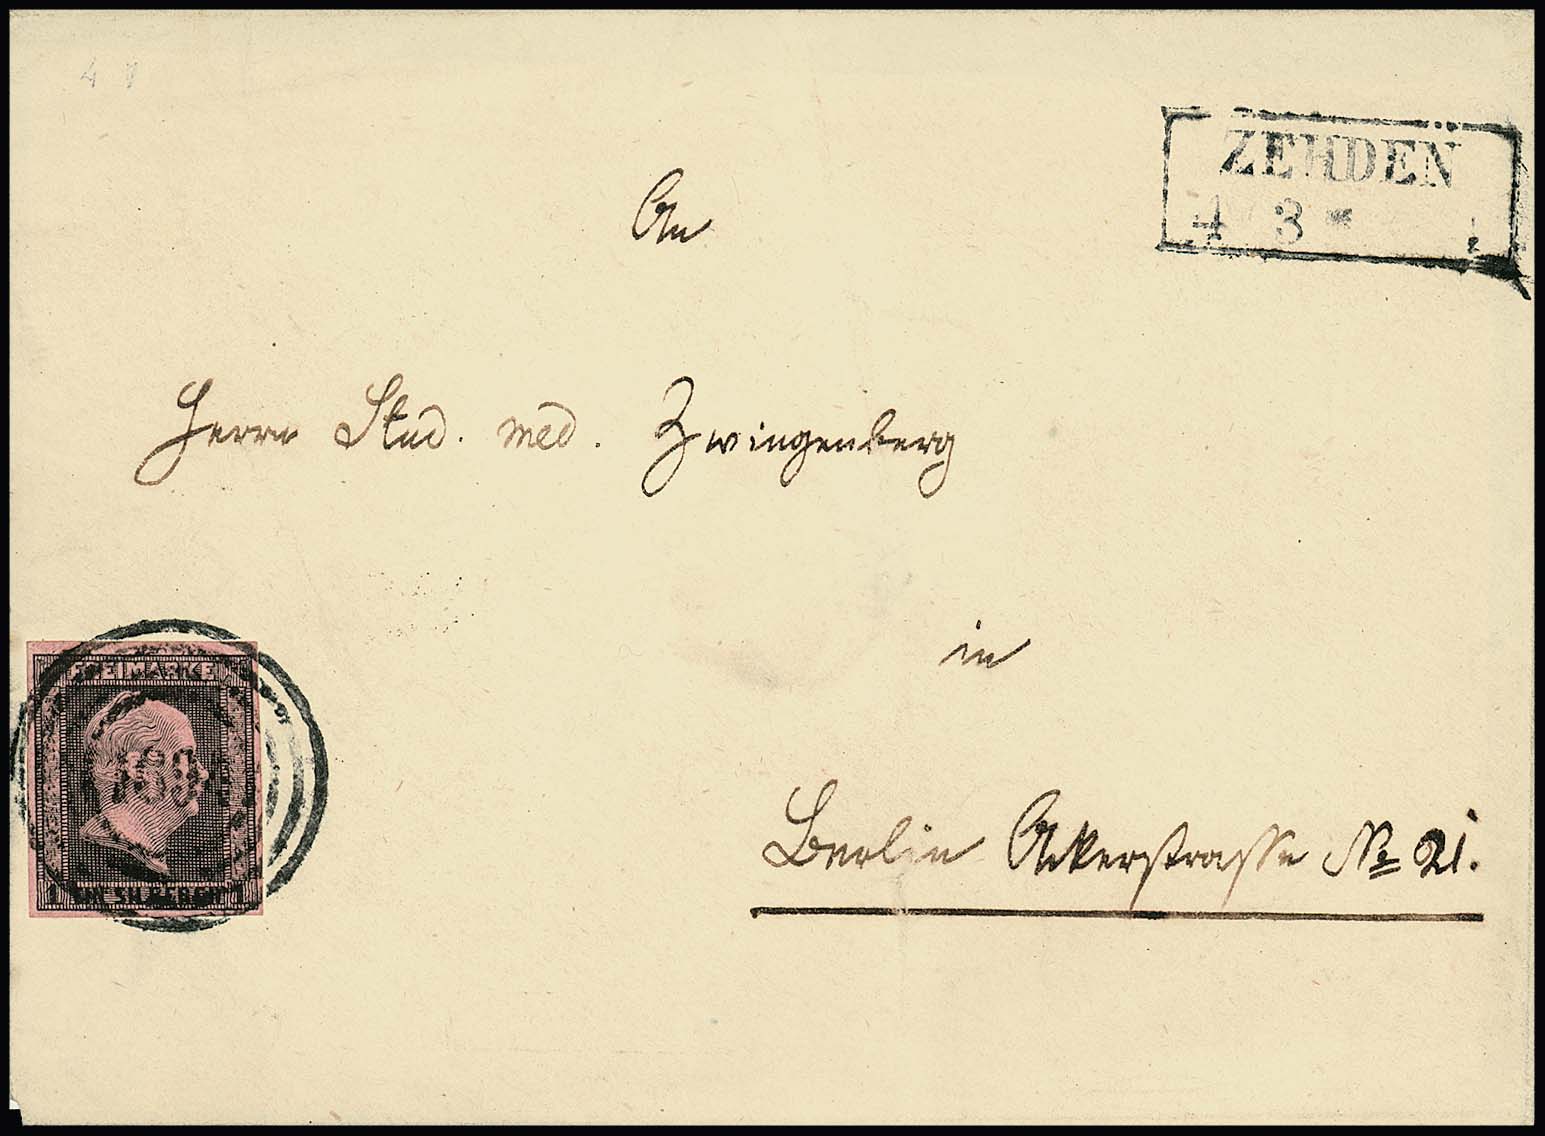 ZEHDEN
4 3 *
An
Herrn Stud. med. Zwingenberg
in
Berlin Ackerstrasse No 21.
FREIMARKE
1 EIN SILBERGR. 1